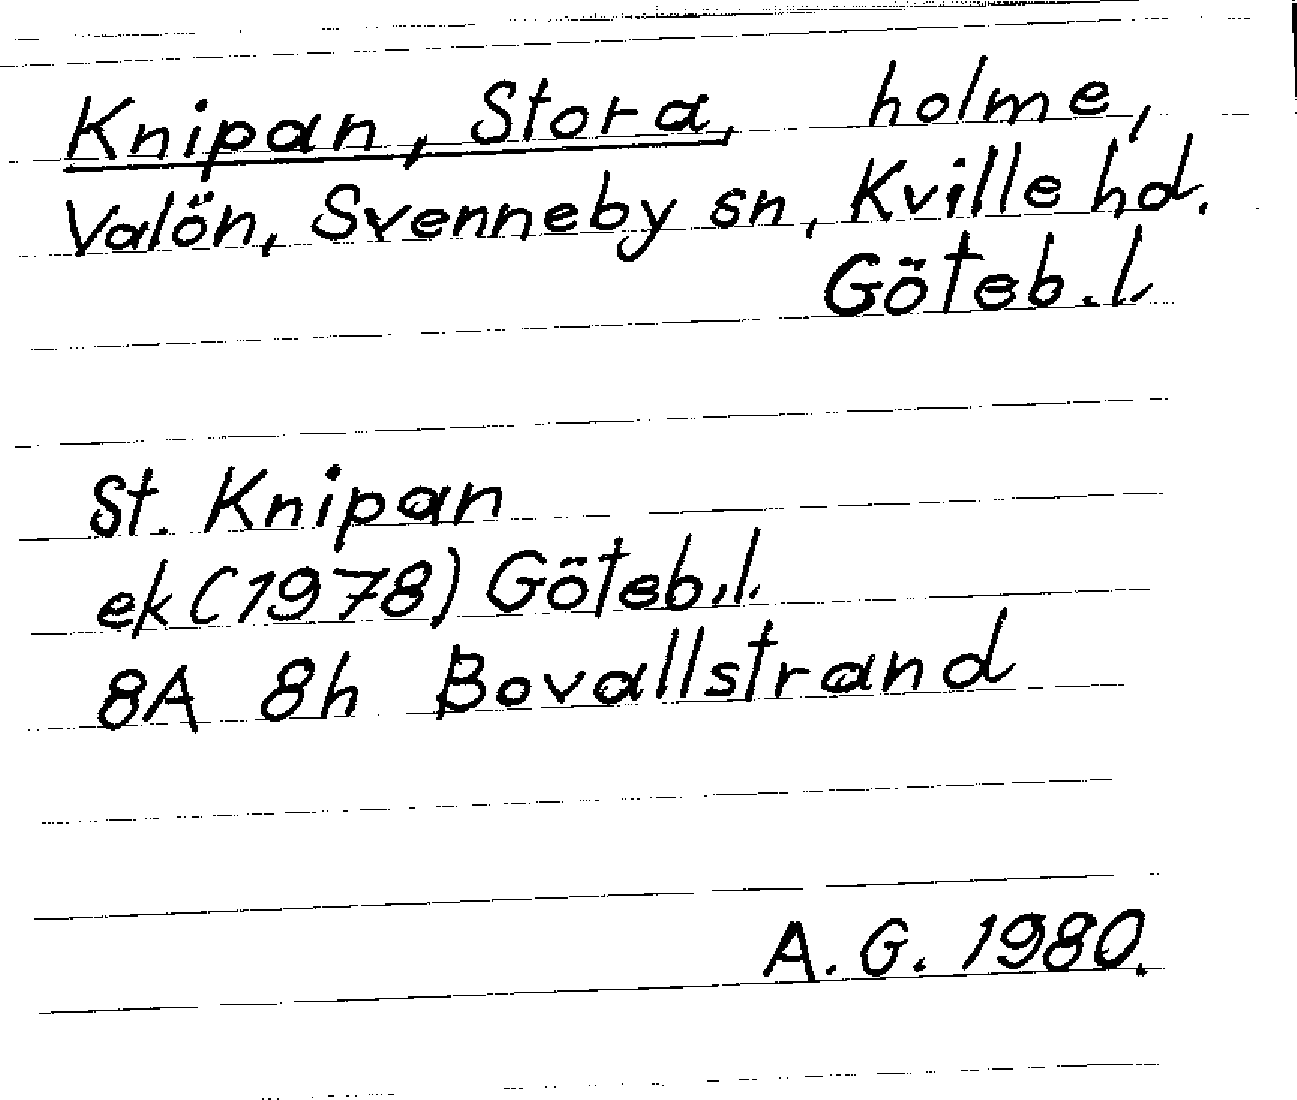 Knipan, Stora, holme,
Valön, Svenneby sn, Kville hd.
Göteb.l.
St. Knipan
ek (1978) Göteb.l.
8A 8h Bovallstrand
A. G. 1980.